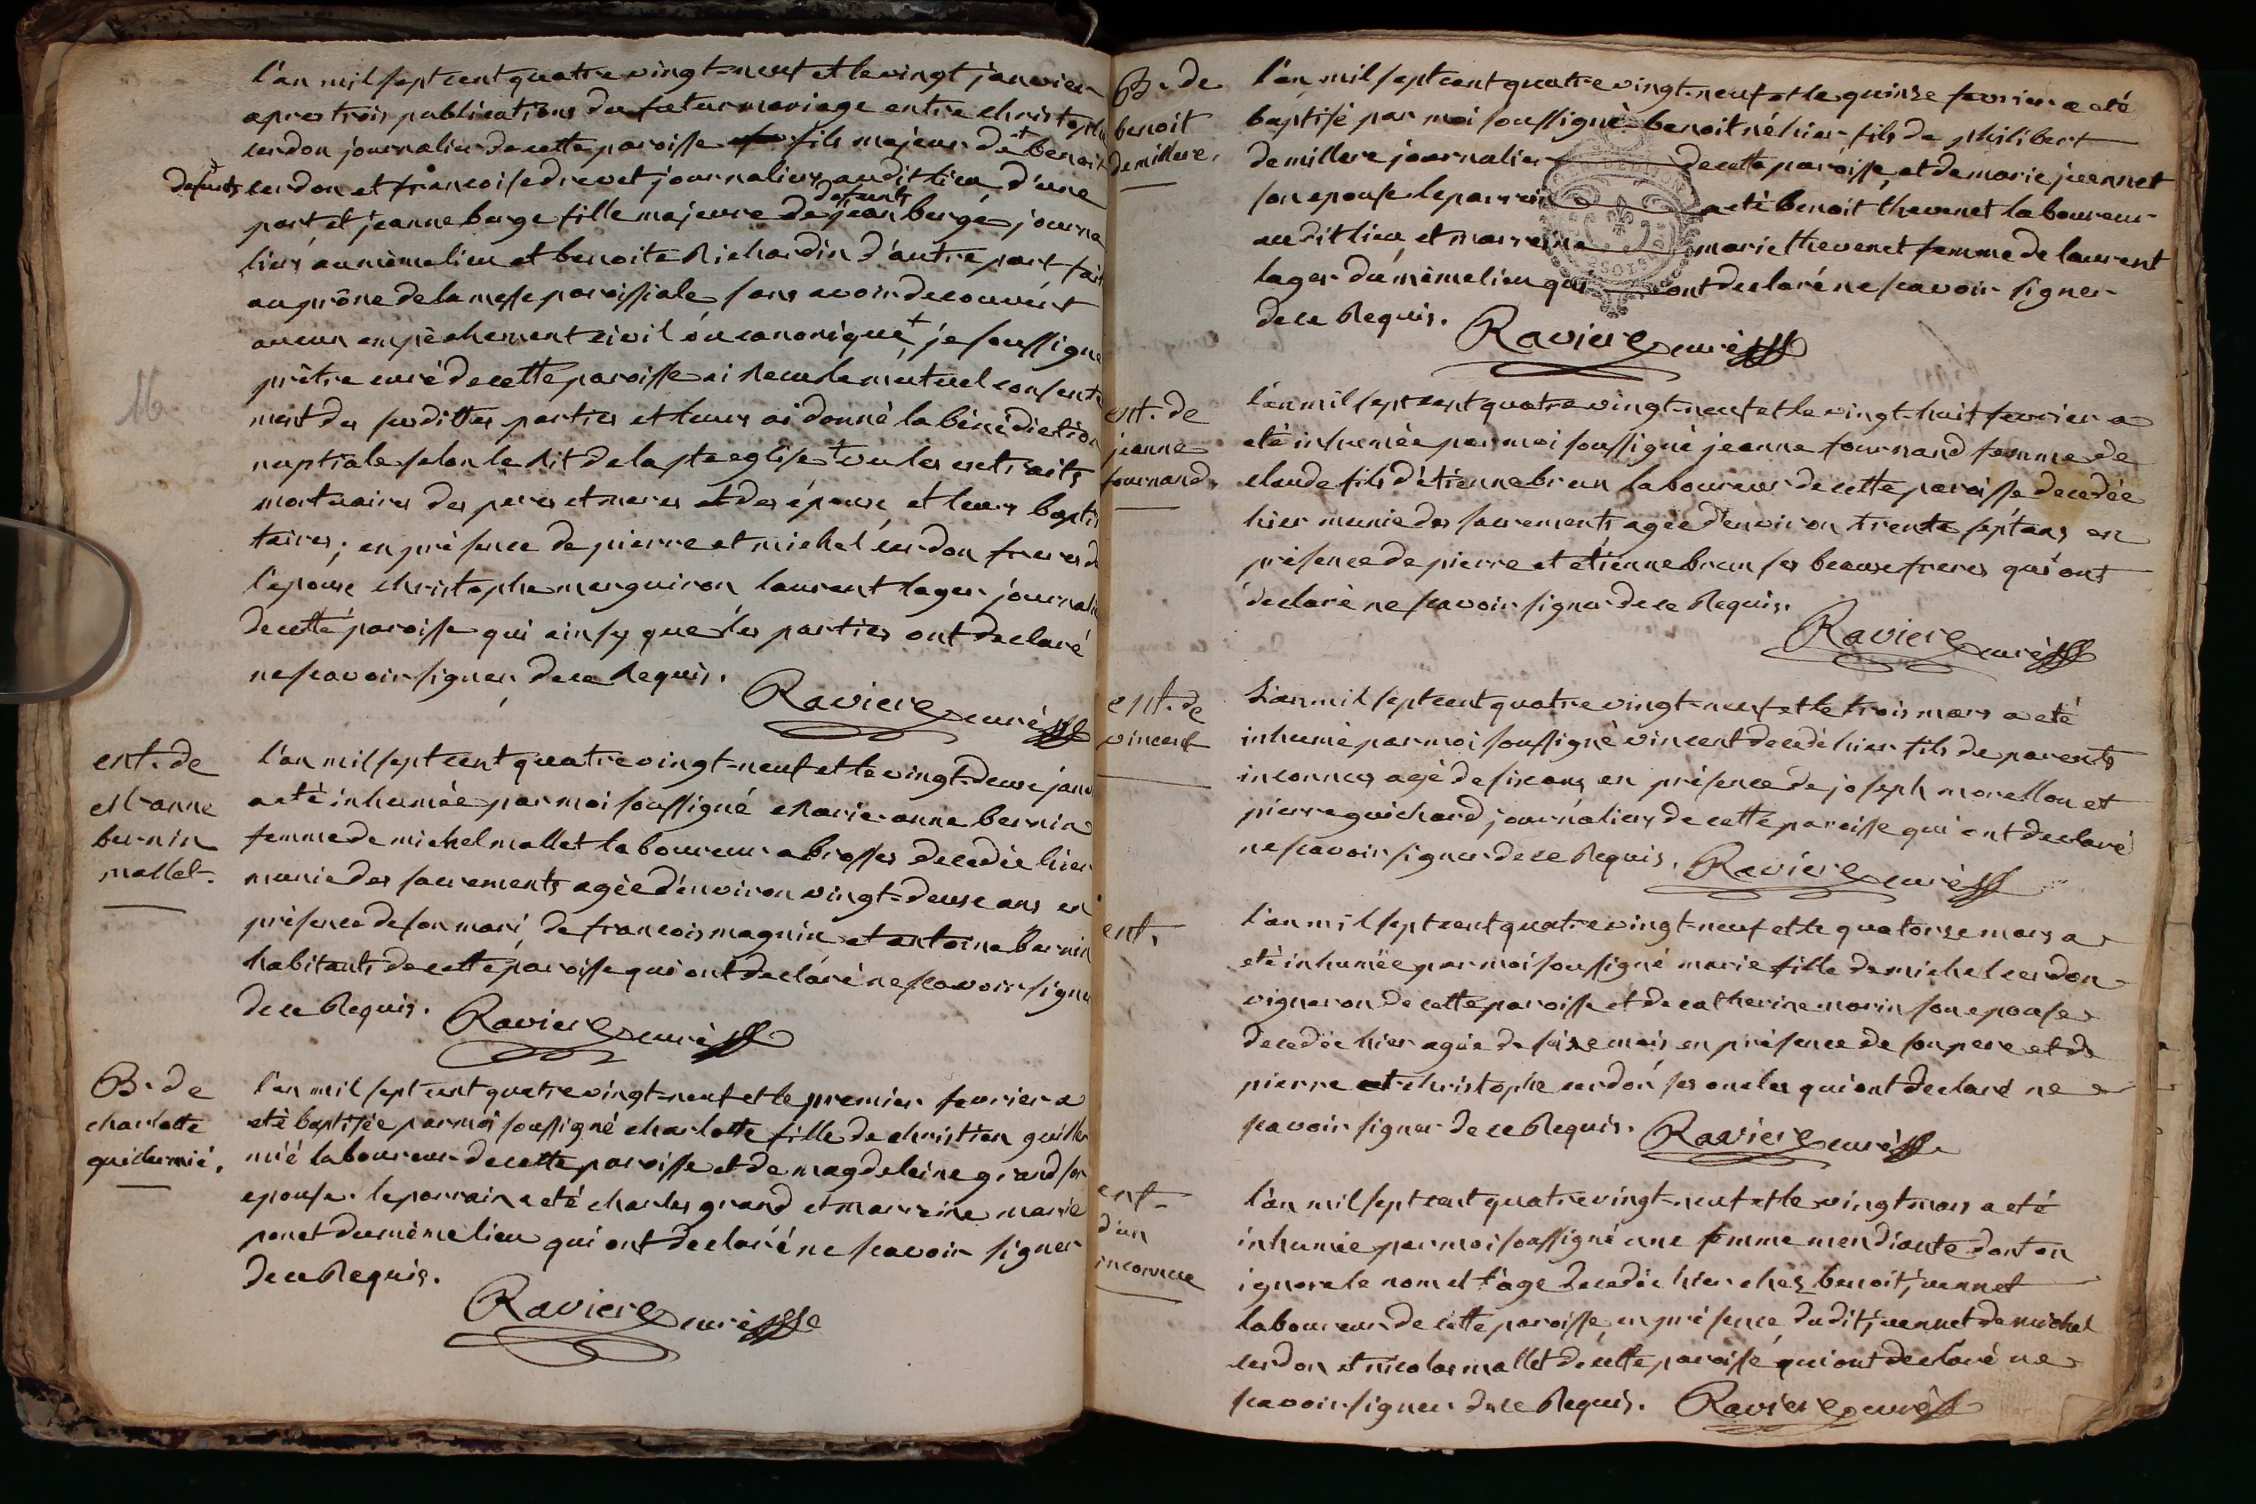 l'an mil sept cent quatre vingt-neuf et le vingt janvier
apres trois publications du futur mariage entre christophe
cerdon journalier de cette paroisse fils majeur de benoit
defunts cerdon et francoise drevet journaliers audit lieu d'une
part et jeanne berge fille majeure de defunts jean berge journa
liers au même lieu et benoite Richardin d'autre part fait
au prône de la messe paroissiale sans avoir decouvert
aucun empêchement civil ou canonique + je soussigné
prêtre curé de cette paroisse ai Recu le mutuel consente
ment des susdittes parties et leurs ai donné la bénédiction
nuptiale selon le Rit de la ste eglise + vu les extraits
mortuaires des peres et meres et des époux et leurs baptis
taires; en présence de pierre et michel cerdon freres de
l'epoux christophe merguiron laurent lager journaliers
de cette paroisse qui ainsy que les parties ont declaré
ne scavoir signer de ce Requis.
Raviere curé
ent. de
anne
bernin
mallet.
l'an mil sept cent quatre vingt-neuf et le vingt-deux janv
a été inhumée par moi soussigné marie-anne bernin
femme de michel mallet laboureur a brosses decedée hier
munie des sacrements agée d'environ vingt-deux ans en
présence de son mari, de francois magnin et antoine bernin
habitants de cette paroisse qui ont declaré ne scavoir signer
de ce Requis.
Raviere curé
B. de
charlotte
guidermié.
l'an mil sept cent quatre vingt-neuf et le premier fevrier a
eté baptisée par moi soussigné charlotte fille de christien guiller
mié laboureur de cette paroisse et de magdeleine grand son
epouse. le parrain a eté charles grand et marreine marie
ponet du même lieu qui ont declaré ne scavoir signer
de ce Requis.
Raviere curé
B. de
benoit
demillere.
l'an mil sept cent quatre vingt-neuf et le quinze fevrier a eté
baptisé par moi soussigné benoit né hier fils de philibert
demillere journalier de cette paroisse et de marie juennet
son epouse le parrein a eté benoit thevenet laboureur
audit lieu et marreine marie thevenet femme de laurent
lager du même lieu qui ont declaré ne scavoir signer
de ce Requis.
Raviere curé
ent. de
jeanne
fournand.
l'an mil sept cent quatre vingt-neuf et le vingt-huit fevrier a
eté inhumée par moi soussigné jeanne fournand femme de
claude fils d'étienne brun laboureur de cette paroisse decedée
hier munie des sacrements agée d'environ trente sept ans en
présence de pierre et etienne brun ses beaux freres qui ont
declaré ne scavoir signer de ce Requis.
Raviere curé
ent. de
vincent
L'an mil sept cent quatre vingt-neuf et le trois mars a eté
inhumé par moi soussigné vincent decedé hier fils de parents
inconnus agé de six ans en présence de joseph morellon et
pierre guichard journaliers de cette paroisse qui ont declaré
ne scavoir signer de ce Requis. Raviere curé
ent.
l'an mil sept cent quatre vingt-neuf et le quatorze mars a
eté inhumée par moi soussigné marie fille de michel cerdon
vigneron de cette paroisse et de catherine morin son epouse
decedée hier agée de seize mois en présence de son pere et de
pierre et christophe cerdon ses oncles qui ont declaré ne
scavoir signer de ce Requis. Raviere curé
ent.
d'un
inconnue
l'an mil sept cent quatre vingt-neuf et le vingt mars a eté
inhumée par moi soussigné une femme mendiante dont on
ignore le nom et l'age decedée hier chez benoit juennet
laboureur de cette paroisse, en présence dudit juennet de michel
cerdon et nicolas mallet de cette paroisse qui ont declaré ne
scavoir signer de ce Requis. Raviere curé